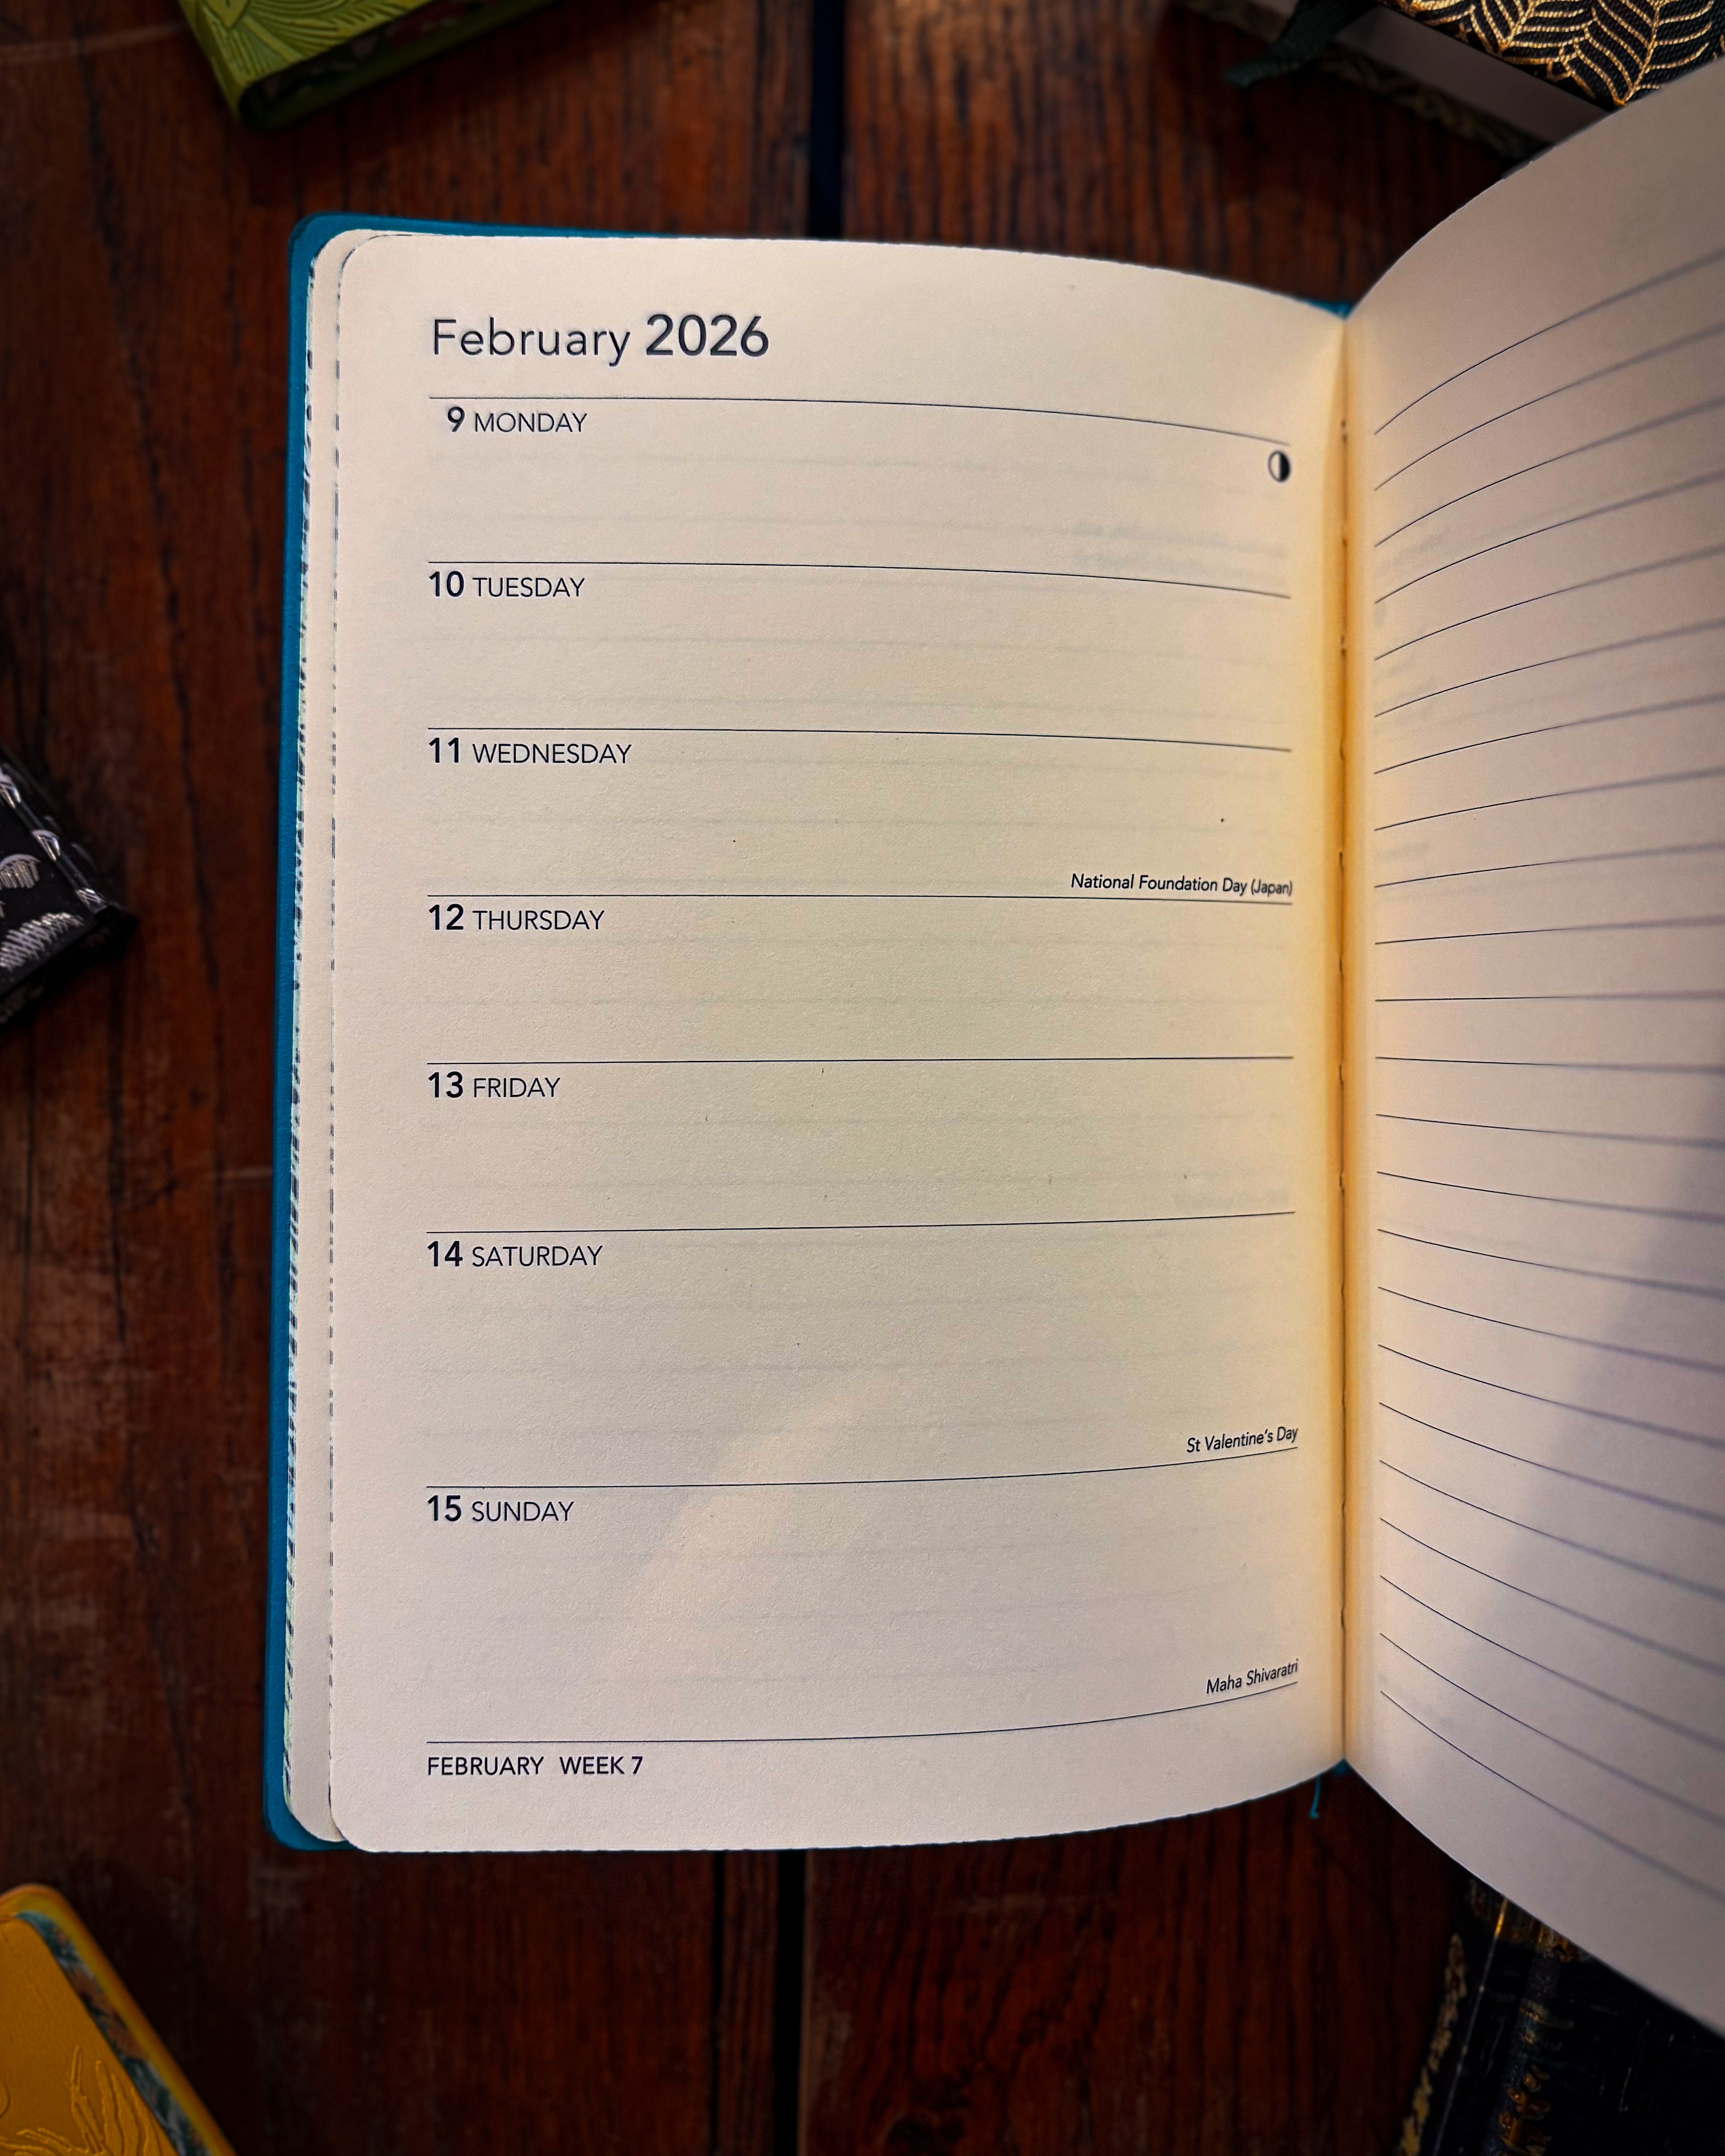 February 2026
9 MONDAY
10 TUESDAY
11 WEDNESDAY
National Foundation Day (Japan)
12 THURSDAY
13 FRIDAY
14 SATURDAY
St Valentine's Day
15 SUNDAY
Maha Shivaratri
FEBRUARY WEEK 7